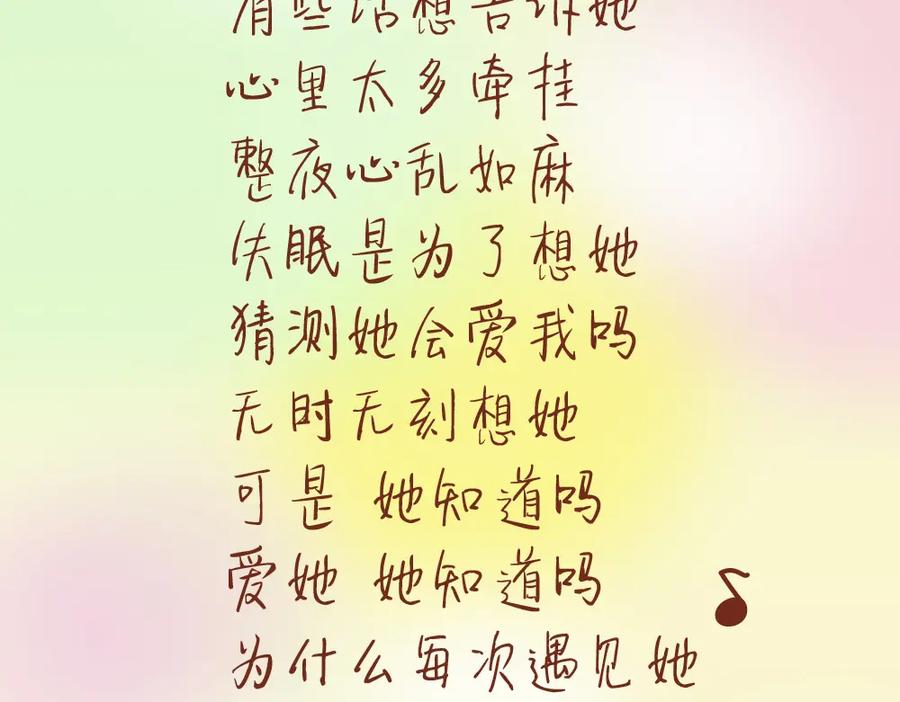 有些话想告诉她
心里太多牵挂
整夜心乱如麻
失眠是为了想她
猜测她会爱我吗
无时无刻想她
可是 她知道吗
爱她 她知道吗
为什么每次遇见她